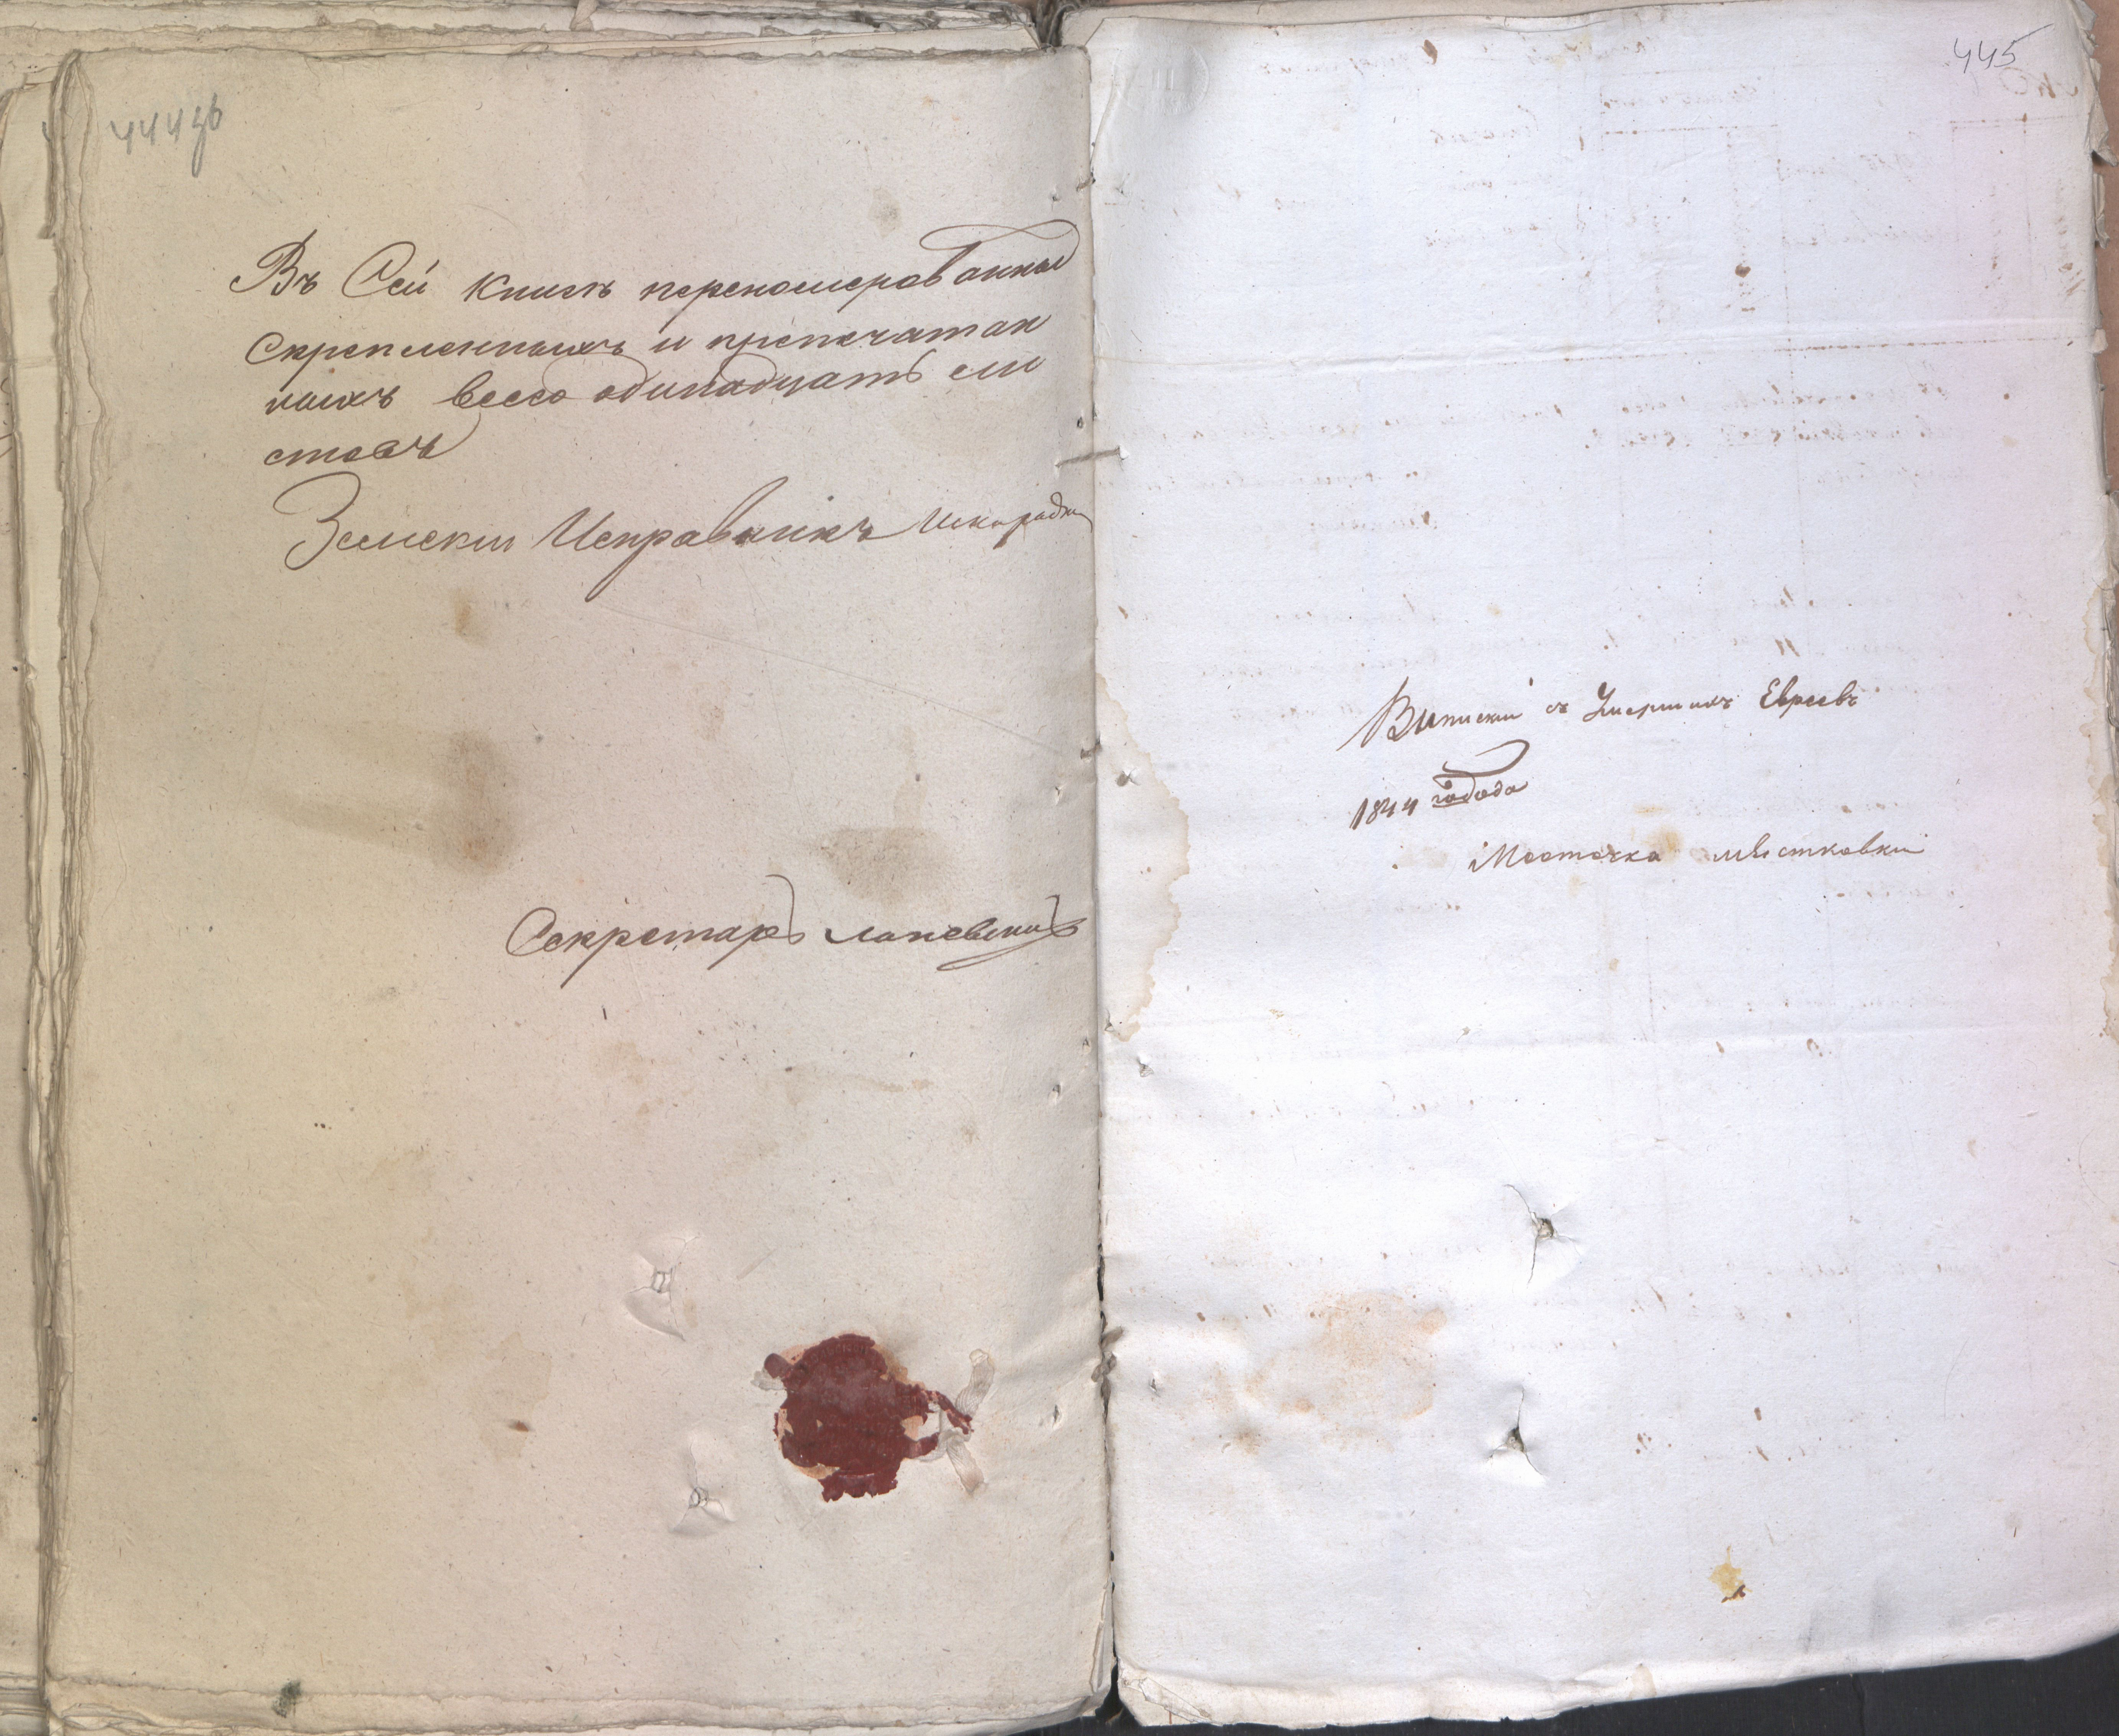 444зв
Въ Сей книгѣ переномерованныхъ
Скрепленныхъ и препечатан
ныхъ всего одинадцать ли
стовъ
Земскии Исправникъ
Секретарь
445
Виписки съ Умершихъ Евреевъ
1844 года
Месточка мястковки